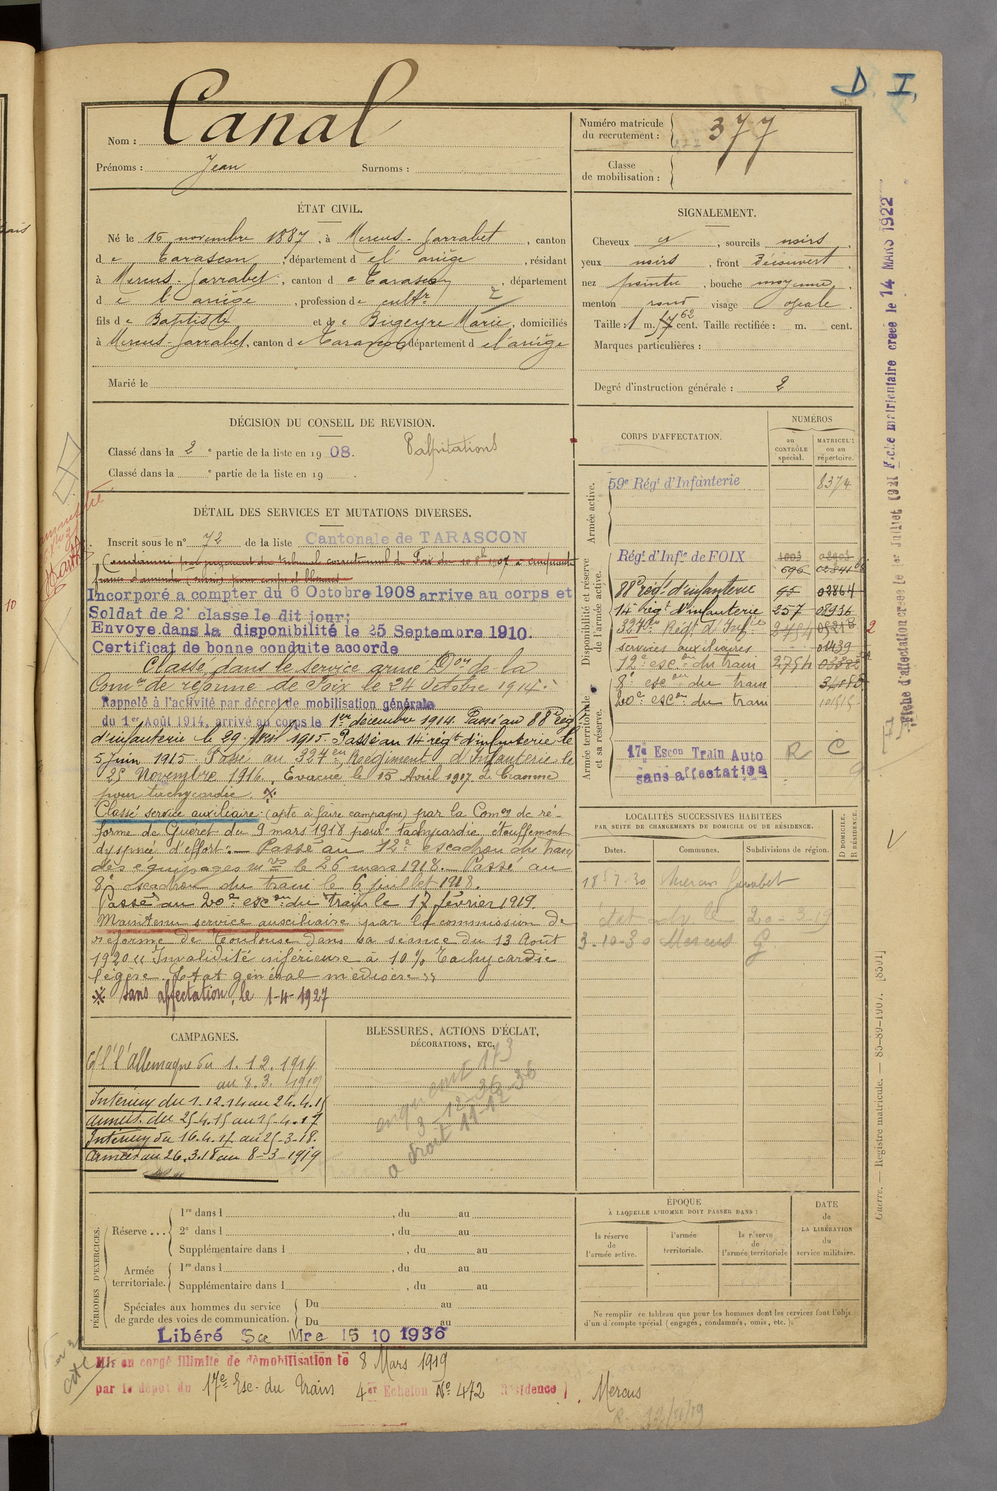 D. I,
Nom : Canal
Prénoms : Jean Surnoms :
Numéro matricule du recrutement : 377
Classe de mobilisation :
ÉTAT CIVIL.
Né le 15 novembre 1887, à Mercus-Garrabet, canton
de Tarascon, département de l'ariège, résidant
à Mercus-Garrabet, canton de Tarascon, département
de l'ariège, profession de cultr
fils de Baptiste et de Bugeyre Marie, domiciliés
à Mercus-Garrabet, canton de Tarascon département de l'ariège
Marié le
SIGNALEMENT.
Cheveux , sourcils noirs,
yeux noirs, front Découvert,
nez pointu, bouche moyenne,
menton rond visage ovale
Taille : 1 m. 62 cent. Taille rectifiée : m. cent.
Marques particulières :
Degré d'instruction générale : 2
DÉCISION DU CONSEIL DE REVISION.
Classé dans la 2e partie de la liste en 1908. Palpitations
Classé dans la e partie de la liste en 19
DÉTAIL DES SERVICES ET MUTATIONS DIVERSES.
Inscrit sous le no 72 de la liste Cantonale de TARASCON
Incorporé a compter du 6 Octobre 1908 arrive au corps et
Soldat de 2e classe le dit jour;
Envoye dans la disponibilité le 25 Septembre 1910.
Certificat de bonne conduite accorde
Classé dans le service armé Don de la
Comon de réforme de Foix le 24 Octobre 1914.
Rappelé à l'activité par décret de mobilisation générale
du 1er Août 1914, arrivé au corps le 1er décembre 1914. Passé au 88e régt
d'infanterie le 29 Avril 1915. Passé au 14e régt d'infanterie le
5 juin 1915. Passé au 334eme Régiment d'Infanterie le
25 Novembre 1916. Evacué le 15 Avril 1917 de
pour tachycardie.
Classé service auxiliaire (apte à faire campagne) par la Comon de ré-
forme de Guéret du 9 mars 1918 pour tachycardie étouffement
dyspnée d'effort. Passé au 12e escadron du train
des équipages mres le 26 mars 1918. Passé au
8e escadron du train le 6 juillet 1918.
Passé au 20e escon du train le 17 février 1919
Maintenu service auxiliaire par la commission de
réforme de Toulouse dans sa séance du 13 Août
1920 « Invalidité inférieure à 10% Tachycardie
légère. Etat général médiocre »
※ Sans affectation, le 1-4-1927
CORPS D'AFFECTATION.
NUMÉROS
au CONTRÔLE spécial.
MATRICULE ou au répertoire.
Armée active.
59e Régt d'Infanterie 8374
Disponibilité et réserve de l'armée active.
Régt d'Infie de FOIX
88e régt d'infanterie
14e régt d'infanterie 257
334e Régt d'Infie
services auxiliaires
12e escon du train
8e escon du train
20e escon du train
Armée territoriale et sa réserve.
17e Escon Train Auto R C
sans affectation
LOCALITÉS SUCCESSIVES HABITÉES
PAR SUITE DE CHANGEMENTS DE DOMICILE OU DE RÉSIDENCE.
Dates. Communes. Subdivisions de région. D DOMICILE. R RÉSIDENCE.
18-7-30 Mercus Garrabet
3-10-30 Mercus
CAMPAGNES.
C/ l'Allemagne du 1.12.1914
au 8.3.1919
Intérieur du 1.12.14 au 24.4.15
armées du 25.4.15 au 15.4.17
Intérieur du 16.4.17 au 25-3-18.
Armées au 26.3.18 au 8-3-1919
BLESSURES, ACTIONS D'ÉCLAT,
DÉCORATIONS, ETC.
PÉRIODES D'EXERCICES.
Réserve... 1re dans l , du au
2e dans l , du au
Supplémentaire dans l , du au
Armée territoriale. 1re dans l , du au
Supplémentaire dans l , du au
Spéciales aux hommes du service de garde des voies de communication. Du au
Du au
ÉPOQUE
À LAQUELLE L'HOMME DOIT PASSER DANS :
la réserve de l'armée active.
l'armée territoriale.
la réserve de l'armée territoriale
DATE de LA LIBÉRATION du service militaire.
Ne remplir ce tableau que pour les hommes dont les services font l'objet
d'un décompte spécial (engagés, condamnés, omis, etc.).
Libéré Sce Mre 15 10 1936
Mis en congé illimité de démobilisation le 8 Mars 1919
par le dépôt du 17e Esc. du Train 4er Echelon No 472 Résidence Mercus
Fiche matriculaire créée le 14 MARS 1922
Fiche d'affectation créée le 1er Juillet 1921
Guerre. — Registre matricule. — 85-89-1907. [8501]